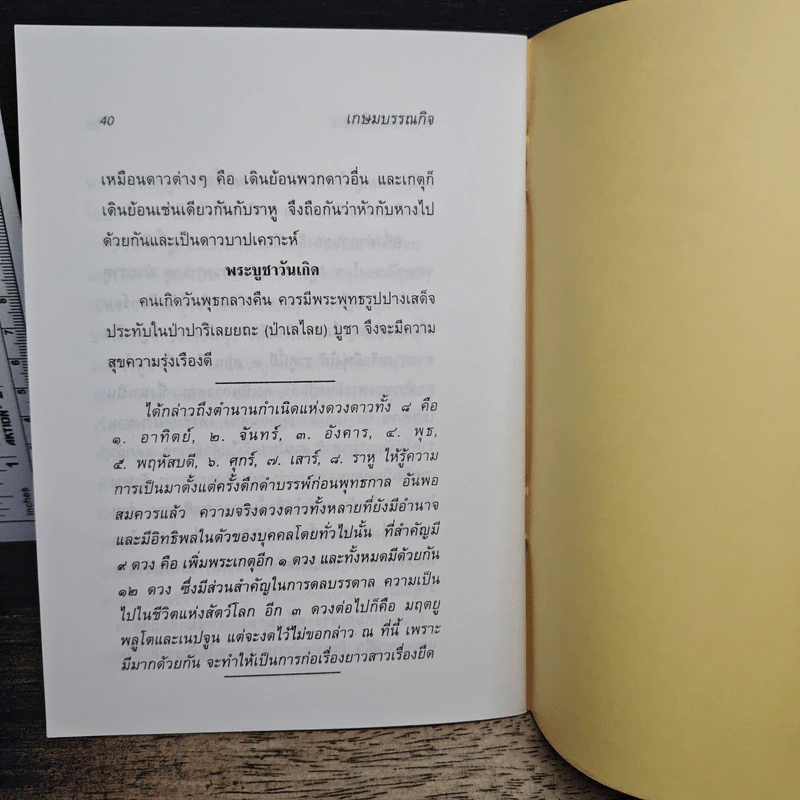 40
เกษมบรรณกิจ
เหมือนดาวต่างๆ คือ เดินย้อนพวกดาวอื่น และเกตุก็
เดินย้อนเช่นเดียวกันกับราหู จึงถือกันว่าหัวกับหางไป
ด้วยกันและเป็นดาวบาปเคราะห์
พระบูชาวันเกิด
คนเกิดวันพุธกลางคืน ควรมีพระพุทธรูปปางเสด็จ
ประทับในป่าปาริเลยยถะ (ป่าเลไลย) บูชา จึงจะมีความ
สุขความรุ่งเรืองดี
ได้กล่าวถึงตำนานกำเนิดแห่งดวงดาวทั้ง ๘ คือ
๑. อาทิตย์, ๒. จันทร์, ๓. อังคาร, ๔. พุธ,
๕. พฤหัสบดี, ๖. ศุกร์, ๗. เสาร์, ๘. ราหู ให้รู้ความ
การเป็นมาตั้งแต่ครั้งดึกดำบรรพ์ก่อนพุทธกาล อันพอ
สมควรแล้ว ความจริงดวงดาวทั้งหลายที่ยังมีอำนาจ
และมีอิทธิพลในตัวของบุคคลโดยทั่วไปนั้น ที่สำคัญมี
๙ ดวง คือ เพิ่มพระเกตุอีก ๑ ดวง และทั้งหมดมีด้วยกัน
๑๒ ดวง ซึ่งมีส่วนสำคัญในการดลบรรดาล ความเป็น
ไปในชีวิตแห่งสัตว์โลก อีก ๓ ดวงต่อไปก็คือ มฤตยู
พลูโตและเนปจูน แต่จะงดไว้ไม่ขอกล่าว ณ ที่นี้ เพราะ
มีมากด้วยกัน จะทำให้เป็นการก่อเรื่องยาวสาวเรื่องยืด
8
7
1
inches